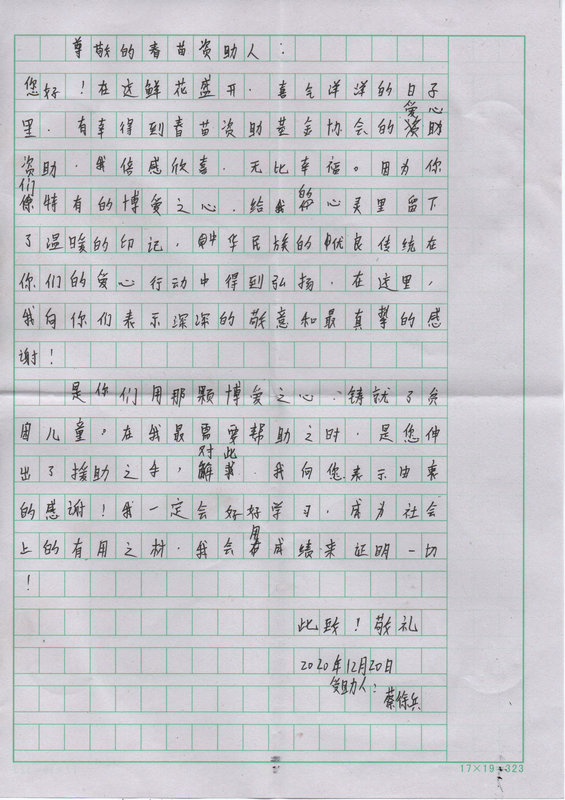 尊敬的春苗资助人：
您好！在这鲜花盛开．喜气洋洋的日子
里．有幸得到春苗资助基金协会的爱心
资助．我倍感欣喜．无比幸福。因为你
们特有的博爱之心．给我的心灵里留下
了温暖的印记，中华民族的优良传统在
你们的爱心行动中得到弘扬．在这里，
我向你们表示深深的敬意和最真挚的感
谢！
是你们用那颗博爱之心，铸就了贫
困儿童，在我最需要帮助之时．是您伸
出了援助之手，对此．我向您表示由衷
的感谢！我一定会好好学习．成为社会
上的有用之材．我会用成绩来证明一切
！
此致！敬礼
2020年12月20日
受助人：
蔡保兵
17×19=323